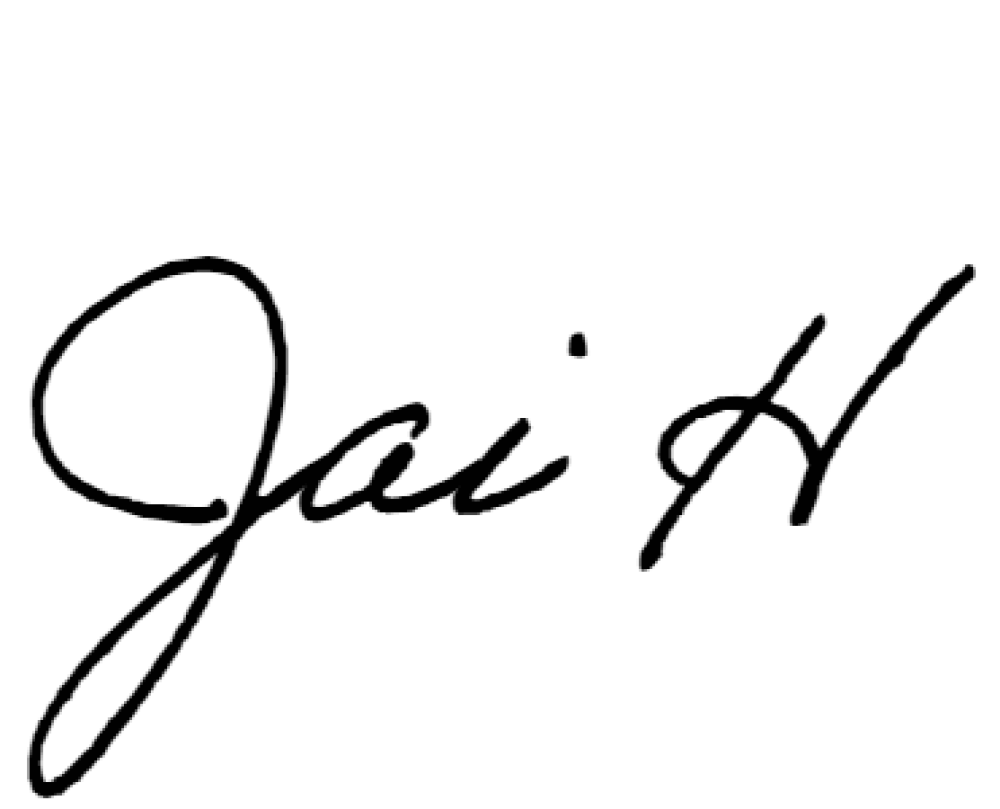 Jai H